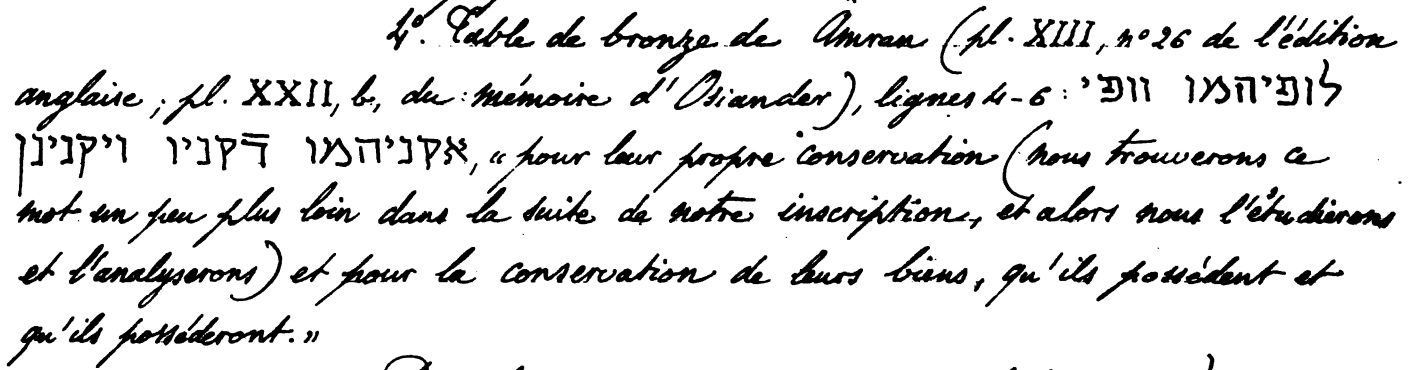 4º. Table de bronze de Amran (pl. XIII, nº 26 de l'édition
anglaise ; pl. XXII, b, du mémoire d'Osiander), lignes 4-6 : לופיהמו וופי
אקניהמו דקניו ויקנינן, « pour leur propre conservation (nous trouverons ce
mot un peu plus loin dans la suite de notre inscription, et alors nous l'étudierons
et l'analyserons) et pour la conservation de leurs biens, qu'ils possédent et
qu'ils posséderont. »